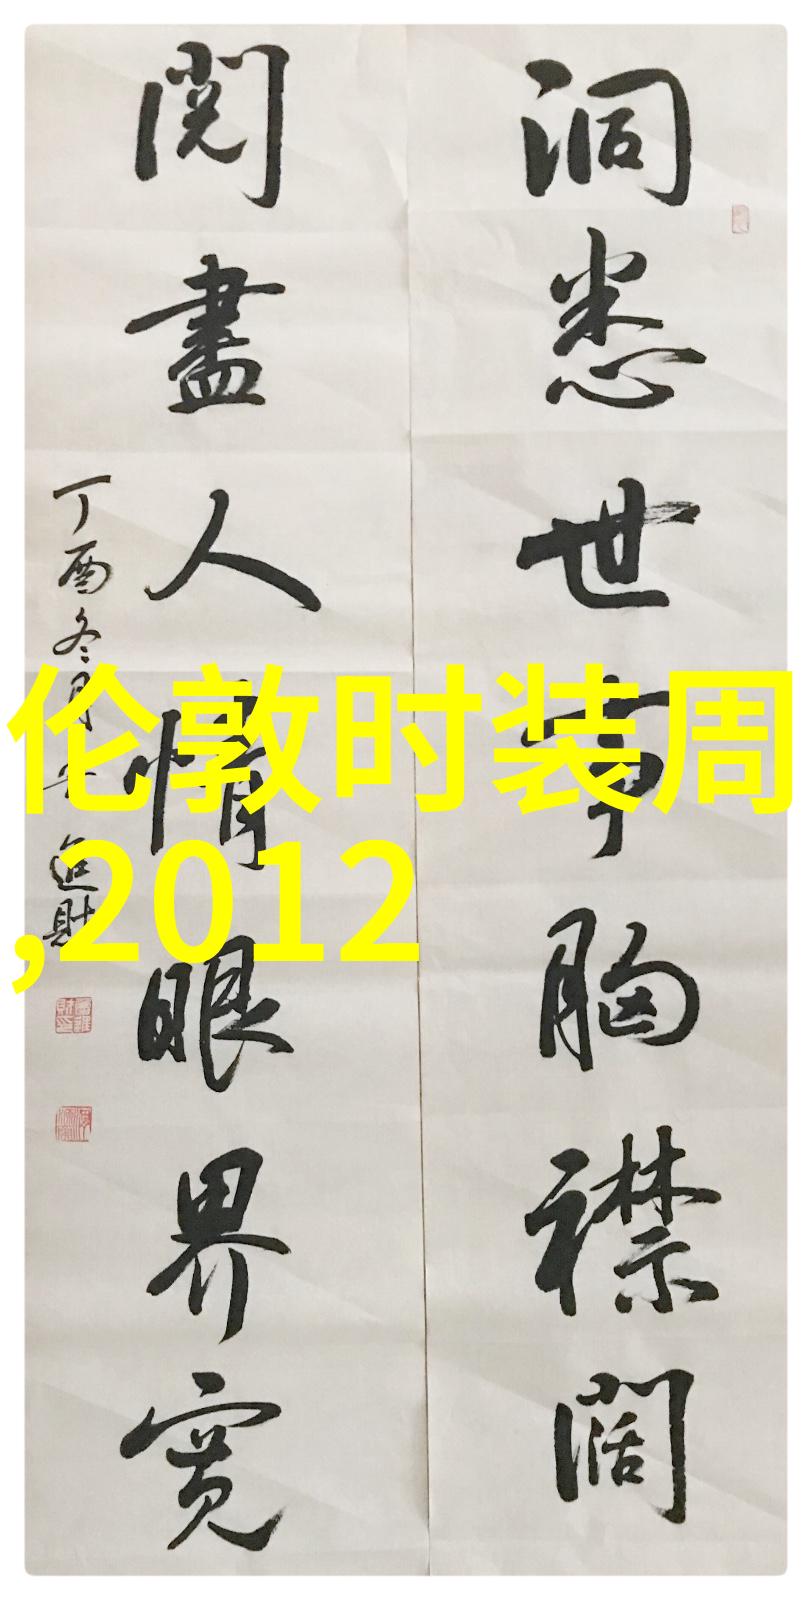 洞悉世事胸襟阔
阅尽人情眼界宽
丁酉冬月
进财
伦敦时装周
,2012